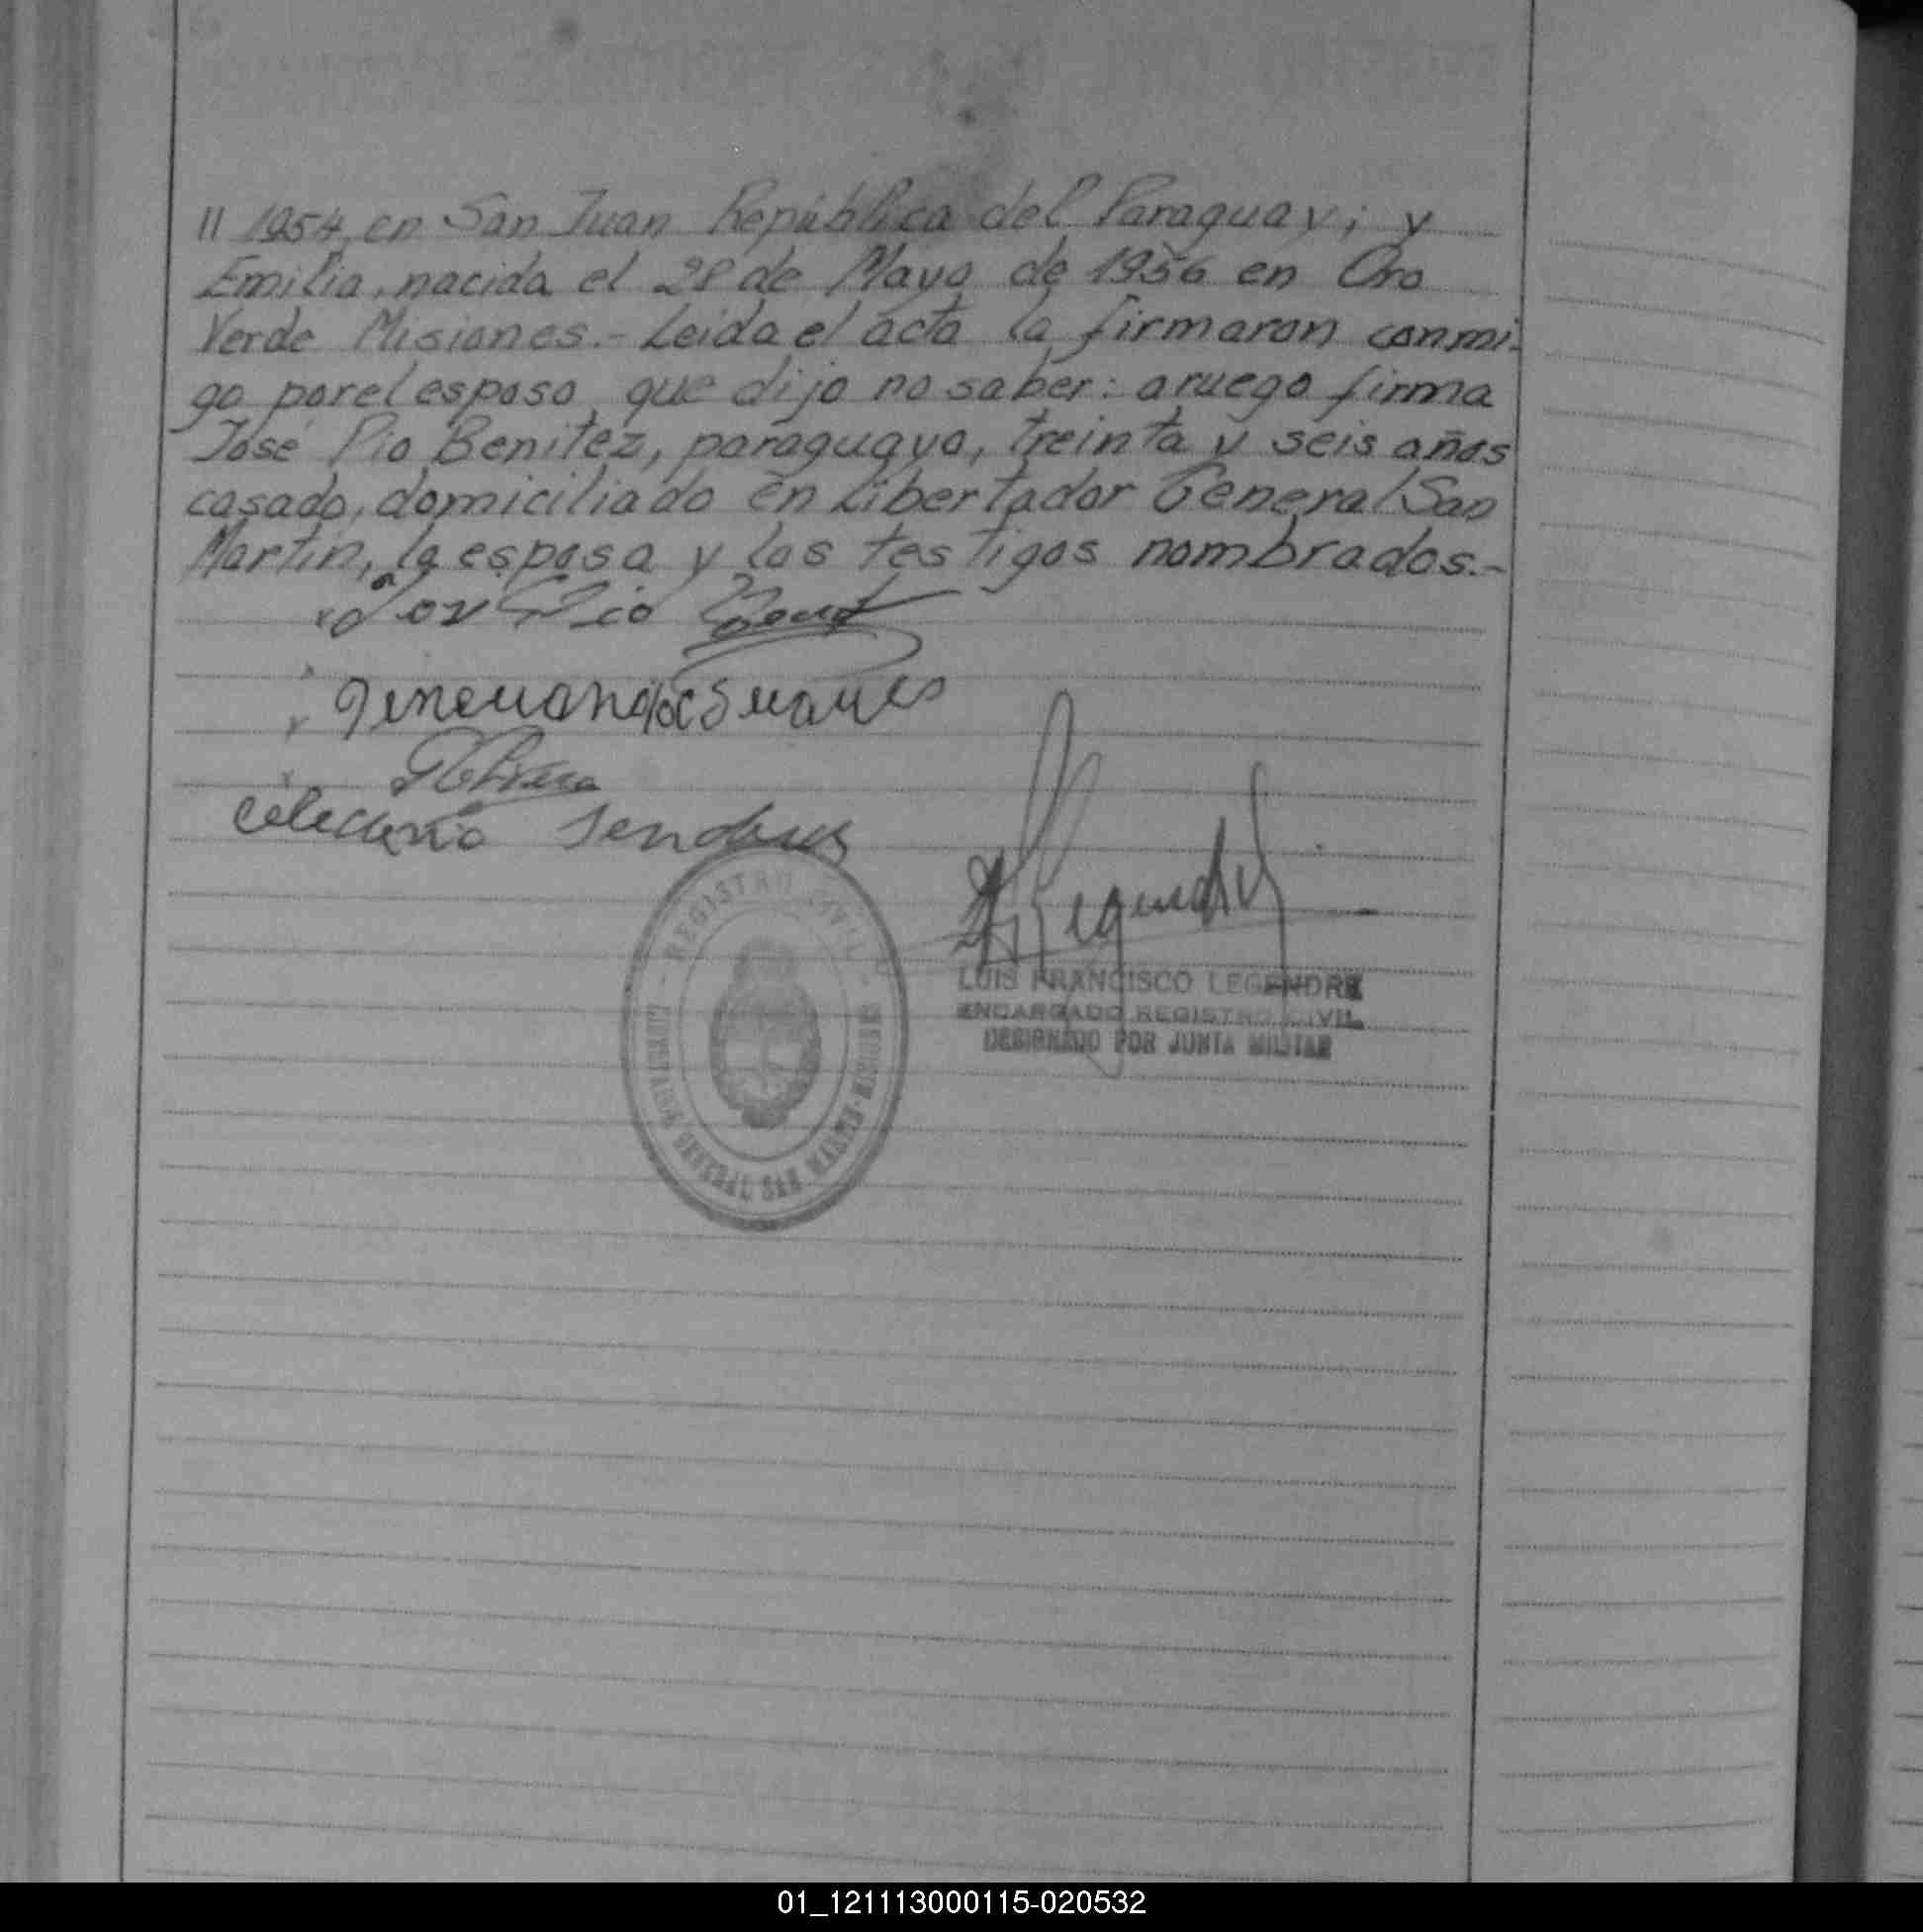 11 1954, en San Juan República del Paraguay; y
Emilia, nacida el 28 de Mayo de 1956 en Oro
Verde Misiones.- Leida el acta la firmaron conmi-
go por el esposo, que dijo no saber: a ruego firma
José Pio Benitez, paraguayo, treinta y seis años
casado, domiciliado en Libertador General San
Martín, la esposa y los testigos nombrados.-
Pio
REGISTRO CIVIL
LUIS FRANCISCO LEGENDRE
ENCARGADO REGISTRO CIVIL
DESIGNADO POR JUNTA MILITAR
01_121113000115-020532